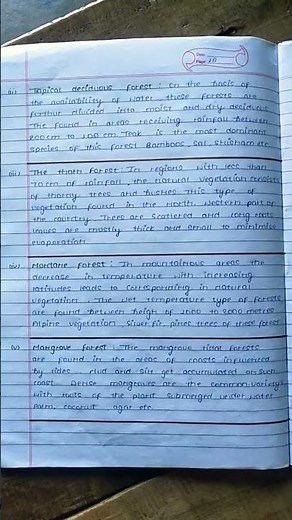 Date:
Page: 
(ii) Tropical deciduous forest: On the basis of
the availability of water these forests are
further divided into moist and dry deciduous
The found in areas receiving rainfall between
200cm to 100 cm Teak is the most dominant
species of this forest Bamboos, Sal, Shisham etc
(iii) The thorn forest: In regions with less than
70cm of rainfall, the natural vegetation consists
of thorny trees and bushes This type of
vegetation found in the north western part of
the country. Trees are scattered and long roots
leaves are mostly thick and small to minimise
evaporation
(iv) Montane forest: In mountainous areas the
decrease in temperature with increasing
latitudes leads to corresponding in natural
vegetation. The wet temperature type of forests
are found between heigh of 1000 to 2000 metres
Alpine vegetation, Silver fir, pines trees of these forest
(v) Mangrove forest: The mangrove tidal forests
are found in the areas of coasts influenced
by tides. Mud and silt get accumulated on such
coast. Dense mangroves are the common variety
with roots of the plant submerged under water
Palm, coconut agar etc.